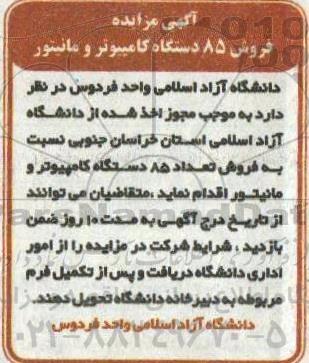 آگهی مزایده
فروش ۸۵ دستگاه کامپیوتر و مانیتور
دانشگاه آزاد اسلامی واحد فردوس در نظر
دارد به موجب مجوز اخذ شده از دانشگاه
آزاد اسلامی استان خراسان جنوبی نسبت
به فروش تعداد ۸۵ دستگاه کامپیوتر و
مانیتور اقدام نماید ،متقاضیان می توانند
از تاریخ درج آگهی به مدت ۱۰ روز ضمن
بازدید ، شرایط شرکت در مزایده را از امور
اداری دانشگاه دریافت و پس از تکمیل فرم
مربوطه به دبیرخانه دانشگاه تحویل دهند.
دانشگاه آزاد اسلامی واحد فردوس
۰۲۱-۸۸۳۴۹۶۷۰-۵